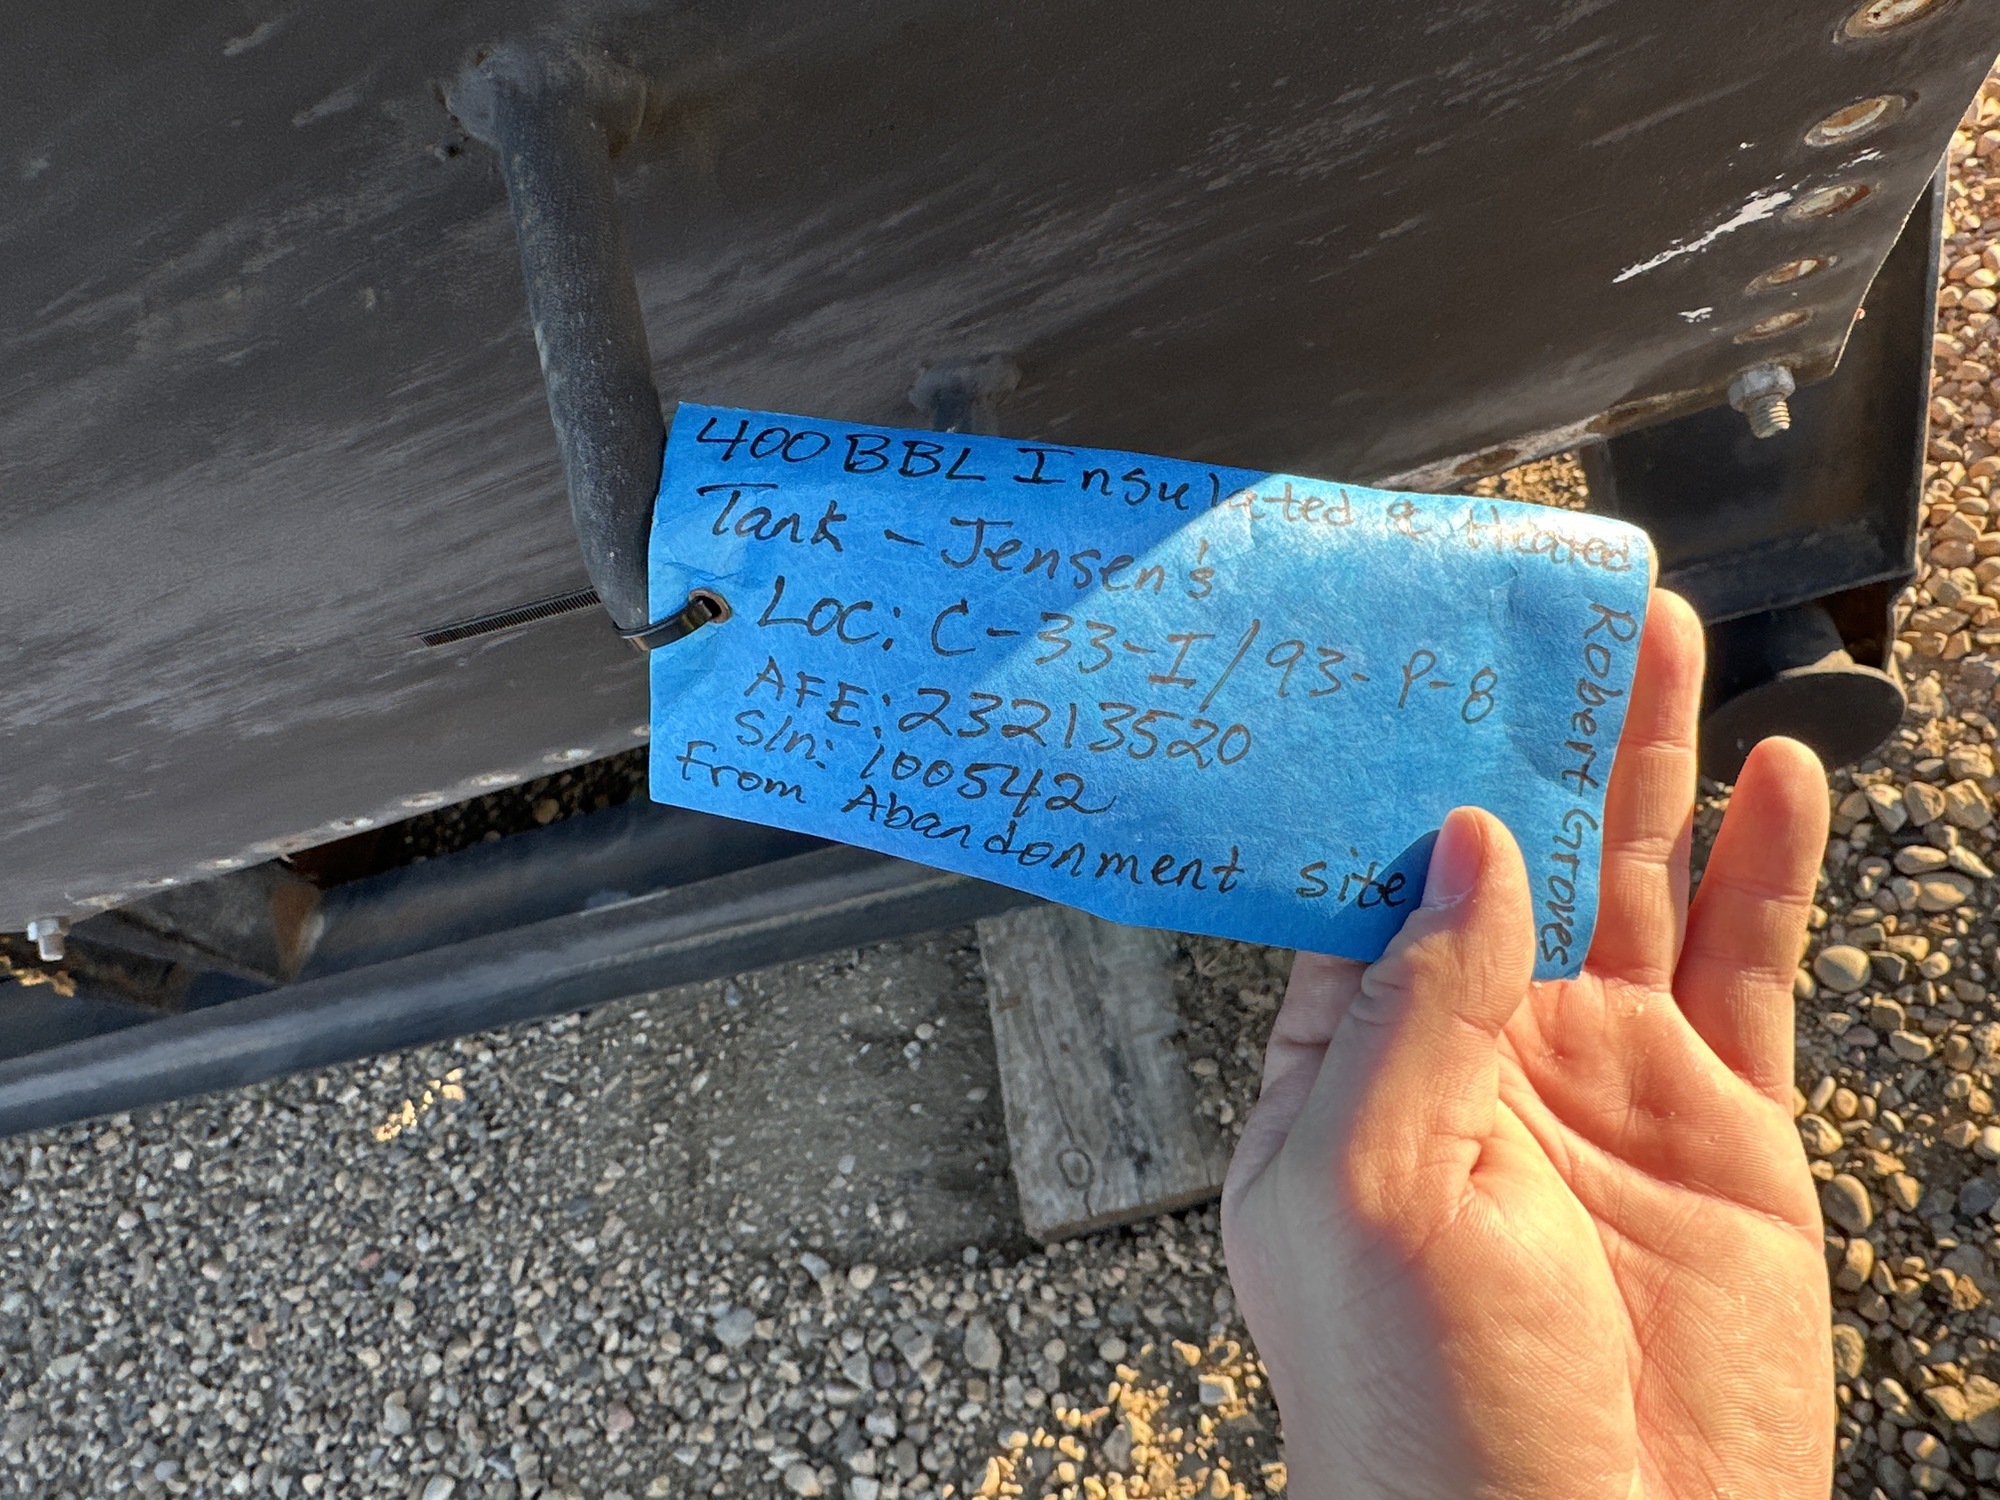 400 BBL Insulated & Heated
Tank - Jensen's
LOC: C-33-I/93-P-8
AFE: 23213520
S/n: 100542
From Abandonment site
Robert Groves